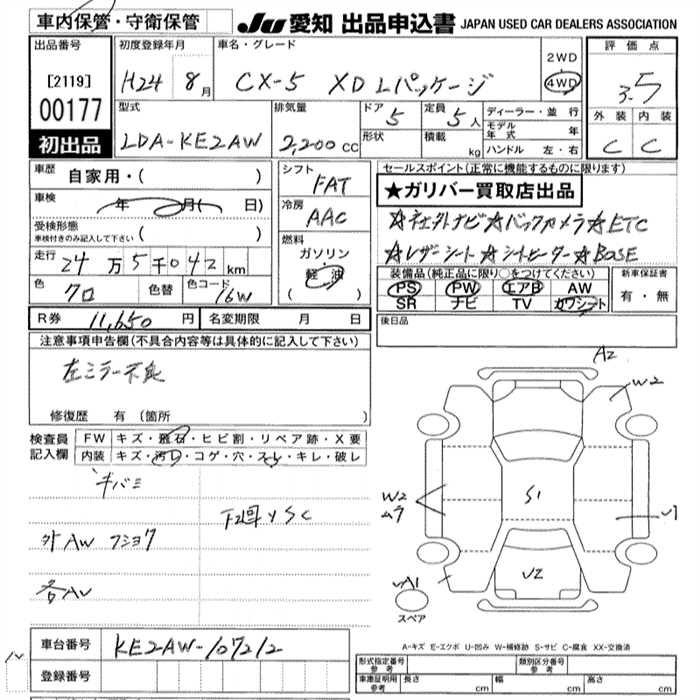 車内保管・守衛保管
JU 愛知 出品申込書 JAPAN USED CAR DEALERS ASSOCIATION
出品番号
[2119]
00177
初出品
初度登録年月
H24 8月
車名・グレード
CX-5 XD Lパッケージ
2WD
4WD
評価点
3.5
外装 内装
C C
型式
LDA-KE2AW
排気量
2,200 cc
ドア
5
定員
5人
形状
積載
kg
ディーラー・並行
モデル年式 年
ハンドル 左・右
車歴 自家用・( )
車検 年 月( 日)
受検形態
車検付きのみ記入して下さい ( )
走行 24万5千042km
色 クロ 色替 色コード 16W
シフト
FAT
冷房
AAC
燃料
ガソリン
軽油
( )
セールスポイント(正常に機能するものに限ります)
★ガリバー買取店出品
☆社外ナビ☆バックカメラ☆ETC
☆レザーシート☆シートヒーター☆BOSE
装備品(純正品に限り○をつけてください)
PS PW エアB AW
SR ナビ TV カワシート
新車保証書
有・無
R券 11,650円 名変期限 月 日
後日品
注意事項申告欄(不具合内容等は具体的に記入して下さい)
左ミラー不良
修復歴 有 (箇所
検査員記入欄
FW キズ・飛石・ヒビ割・リペア跡・X要
内装 キズ・汚レ・コゲ・穴・スレ・キレ・破レ
キバミ
下廻りSC
外AW フショク
各AU
A2
W2
W2
ムラ
S1
U1
U2
A1
スペア
A-キズ E-エクボ U-凹み W-補修跡 S-サビ C-腐食 XX-交換済
車台番号 KE2AW-107212
登録番号
形式指定番号 参考
類別区分番号 参考
車庫証明用 参考 長さ cm 幅 cm 高さ cm